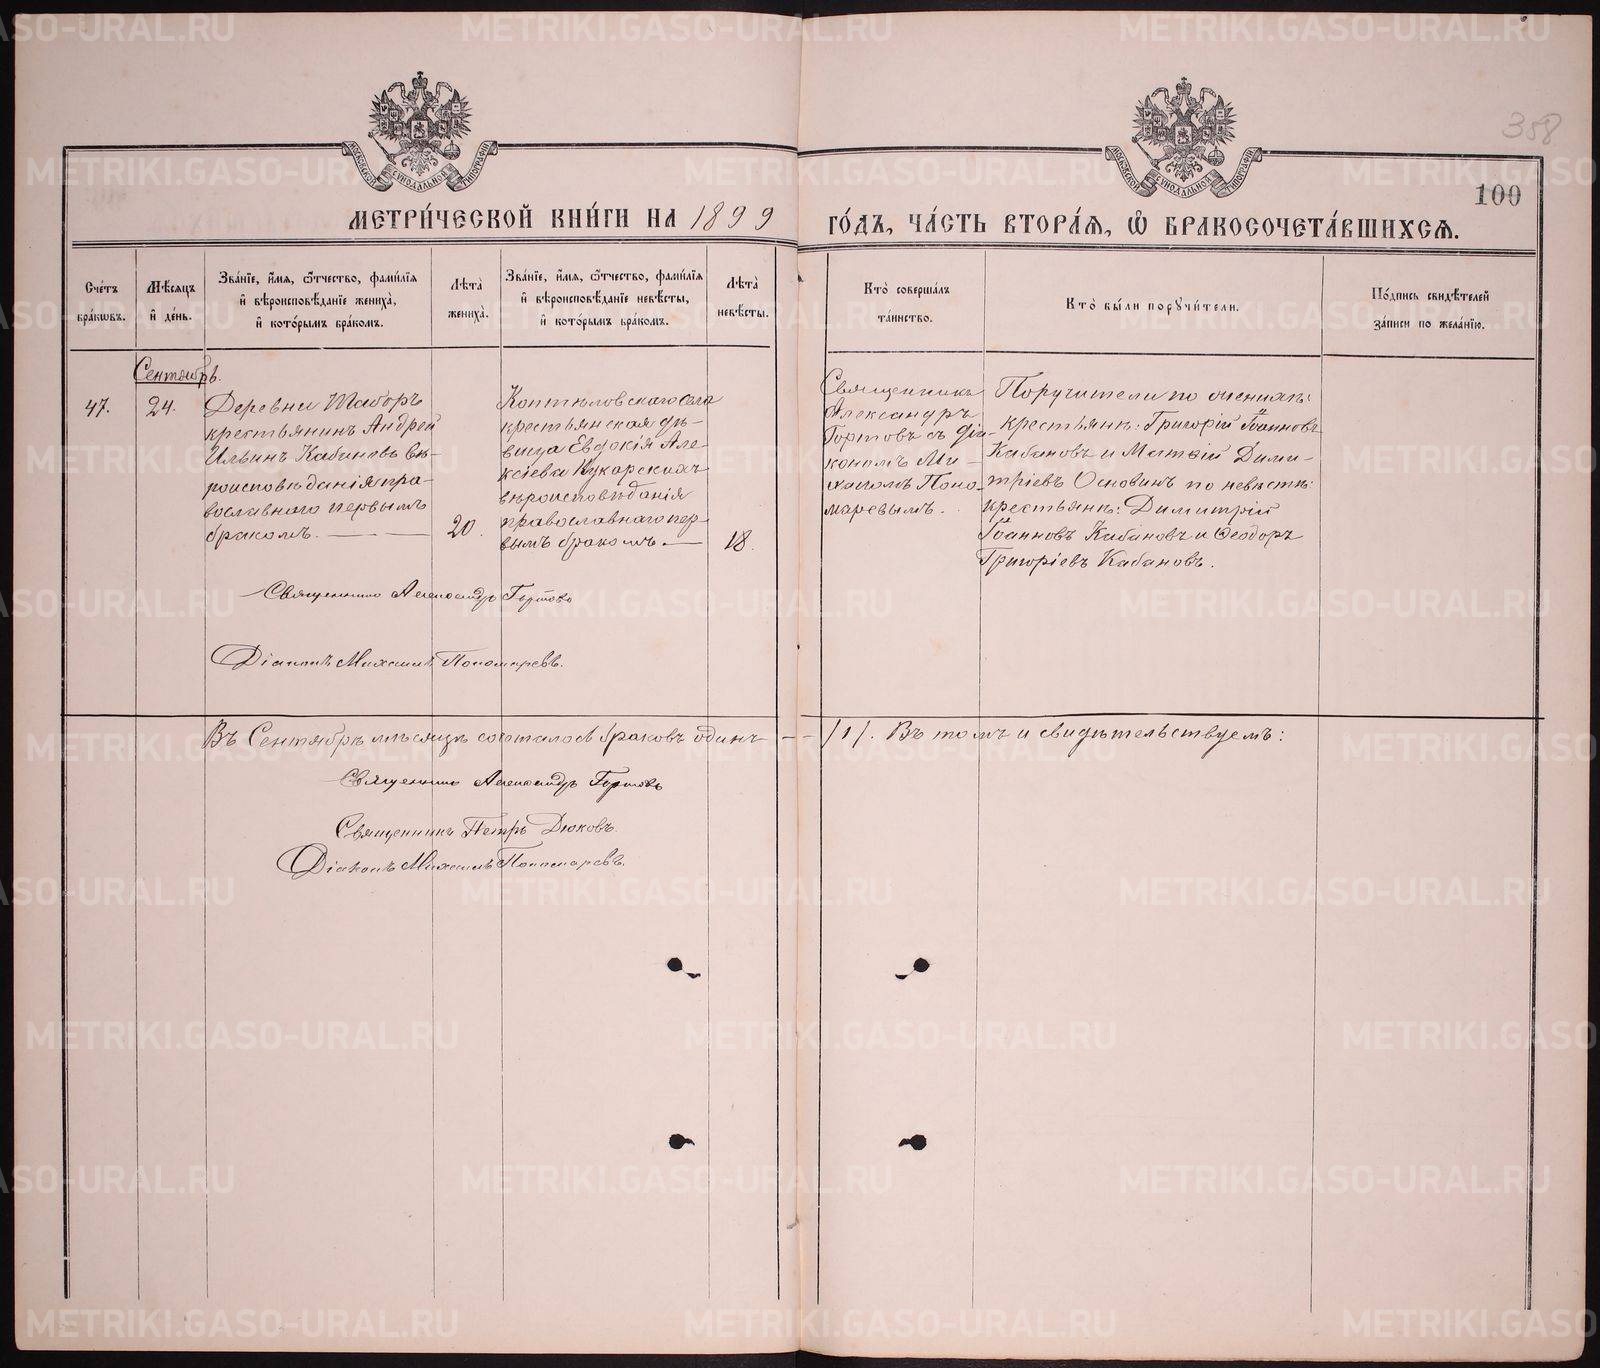 358
100
МОСКОВСКОЙ СѴНОДАЛЬНОЙ ТИПОГРАФІИ
МОСКОВСКОЙ СѴНОДАЛЬНОЙ ТИПОГРАФІИ
МЕТРИ́ЧЕСКОЙ КНИ́ГИ НА 1899 ГО́ДЪ, ЧА́СТЬ ВТОРА́Ѧ, Ѽ БРАКОСОЧЕТА́ВШИХСѦ.
Сче́тъ бра́кѡвъ.
Мѣ́сѧцъ и҆ де́нь.
Зва́нїе, и҆́мѧ, ѻ҆́тчество, фами́лїѧ и҆ вѣроисповѣ́данїе жениха̀, и҆ кото́рымъ бра́комъ.
Лѣ́та жениха̀.
Зва́нїе, и҆́мѧ, ѻ҆́тчество, фами́лїѧ и҆ вѣроисповѣ́данїе невѣ́сты, и҆ кото́рымъ бра́комъ.
Лѣ́та невѣ́сты.
Кто̀ соверша́лъ та́инство.
Кто̀ бы́ли порꙋчи́тели.
По́дпись свидѣ́телей за́писи по жела́нїю.
Сентябрь.
47.
24.
Деревни Таборъ
крестьянинъ Андрей
Ильинъ Кабановъ вѣ-
роисповѣданія пра-
вославнаго первымъ
бракомъ.
20.
Коптѣловскаго села
крестьянская дѣ-
вица Евдокія Але-
ксіева Кукарскихъ
вѣроисповѣданія
православнаго пер-
вымъ бракомъ.
18.
Священникъ
Александръ
Гортовъ съ Діа-
кономъ Ми-
хаиломъ Поно-
маревымъ.
Поручители по женихѣ:
крестьяне: Григорій Іоанновъ
Кабановъ и Матѳій Дими-
тріевъ Осовинъ по невѣстѣ:
крестьяне: Димитрій
Іоанновъ Кабановъ и Ѳеодоръ
Григоріевъ Кабановъ.
Священникъ Александръ Гортовъ
Діаконъ Михаилъ Пономаревъ.
Въ Сентябрѣ мѣсяцѣ состоялось браковъ одинъ - - /1/. Въ томъ и свидѣтельствуемъ:
Священникъ Александръ Гортовъ
Священникъ Петръ Дюковъ.
Діаконъ Михаилъ Пономаревъ.
METRIKI.GASO-URAL.RU